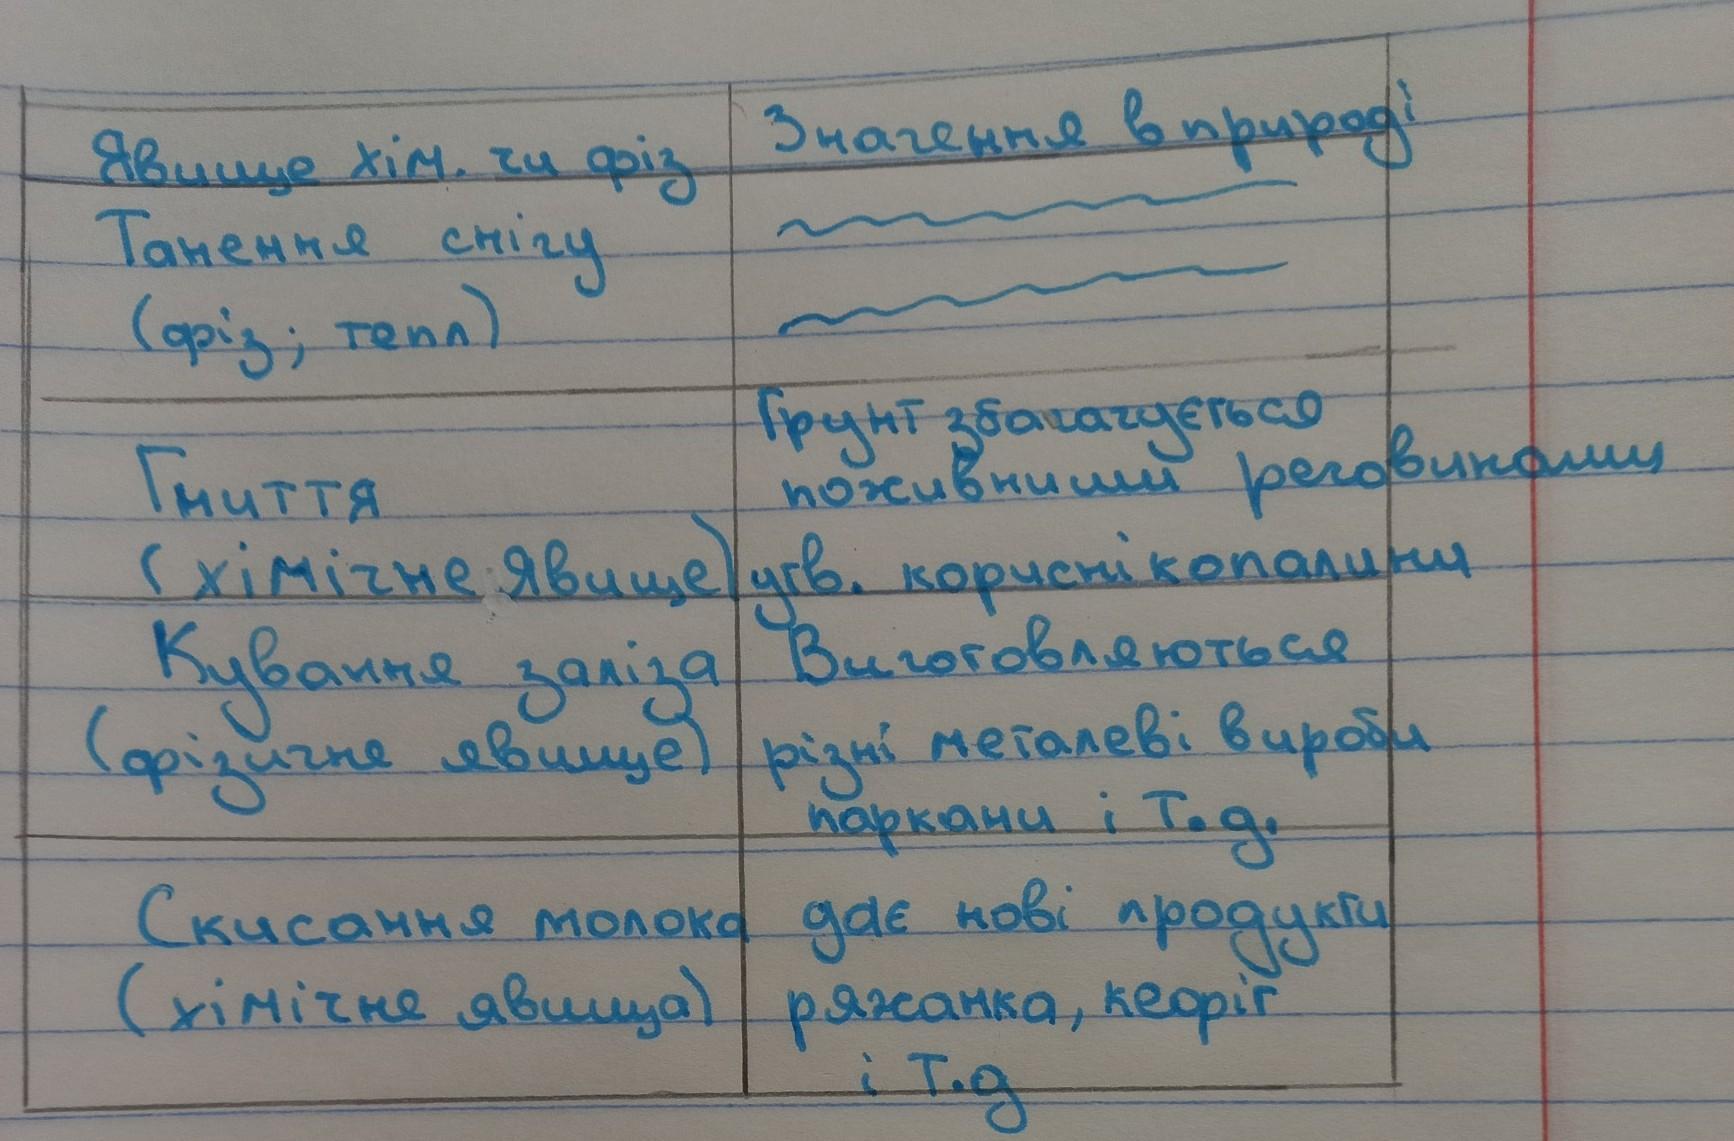 Явище хім. чи фіз
Значення в природі
Танення снігу
(фіз; тепл)
Гниття
(хімічне явище)
Грунт збагачується
поживними речовинами
утв. корисні копалини
Кування заліза
(фізичне явище)
Виготовляються
різні металеві вироби
паркани і т.д.
Скисання молока
(хімічне явища)
дає нові продукти
ряжанка, кефір
і т.д